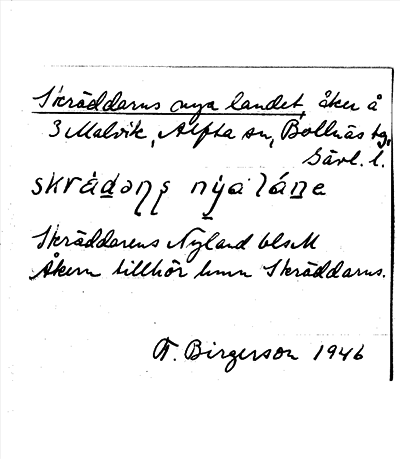 Skräddarns nya landet, åker å
3 Malvik, Alfta sn, Bollnäs tg,
Gävl. l.
skrádǝṇṣ nýa láṇe
Skräddarens Nyland blsM
Åkern tillhör hmn Skräddarns.
F. Birgerson 1946